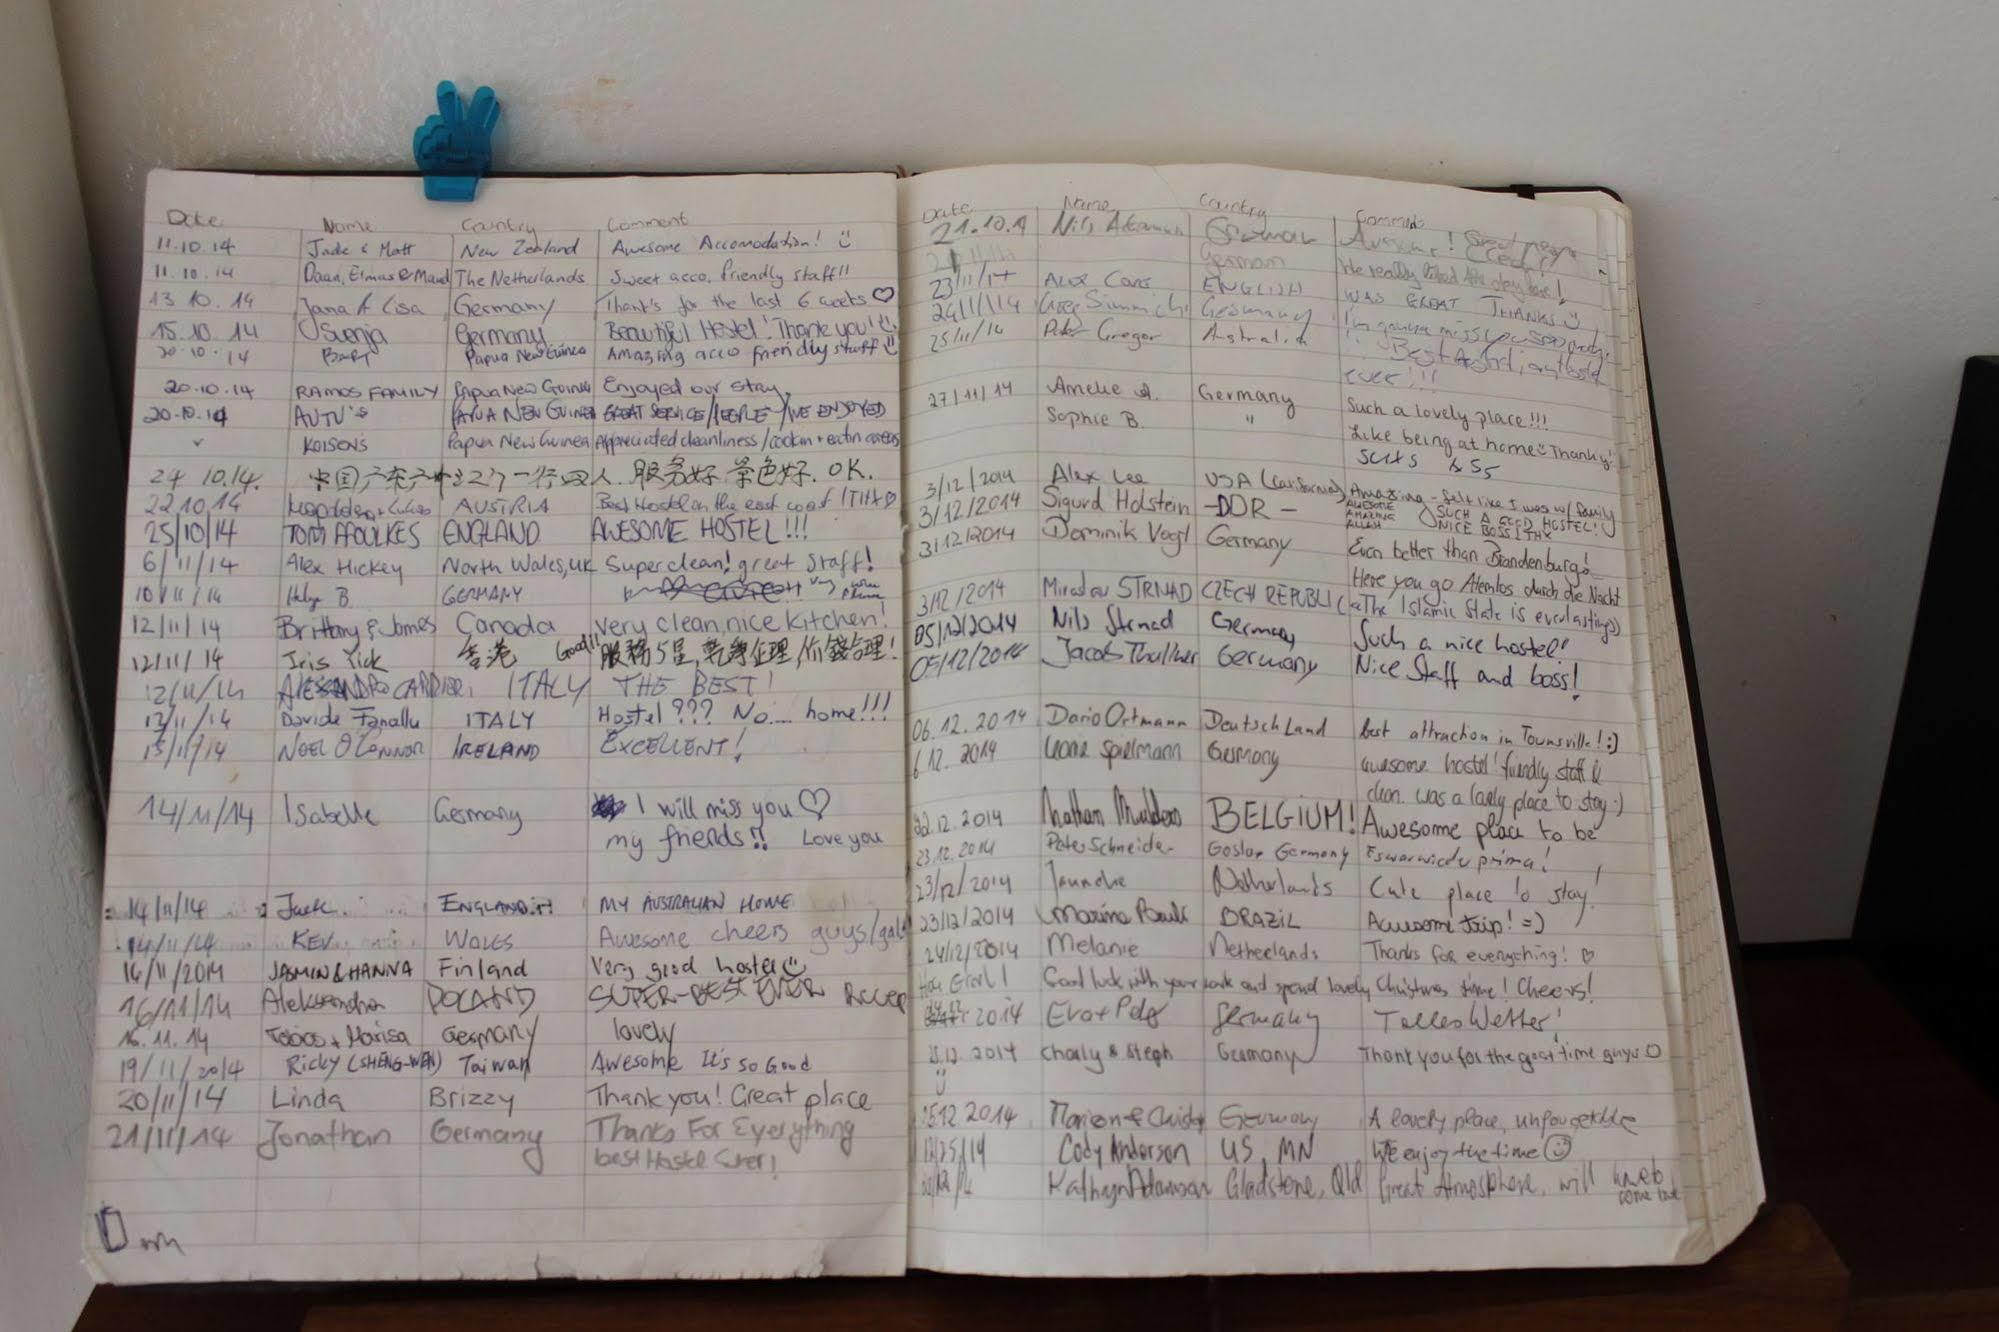 Date Name Country Comment
11.10.14 Jade & Matt New Zealand Awesome Accomodation!
11.10.14 Daan, Elmas & Maud The Netherlands Sweet acco, friendly staff!!
13.10.14 Jana & Lisa Germany Thank's for the last 6 weeks ♡
15.10.14 Svenja Germany Beautiful Hostel! Thank you!
20.10.14 Papua New Guinea Amazing acco friendly staff
20.10.14 RAMOS FAMILY Papua New Guinea Enjoyed our stay
20.10.14 PAPUA NEW GUINEA GREAT SERVICE/PEOPLE/IVE ENJOYED
Papua New Guinea Appreciated cleanliness/cookin + eatin areas
24 10.14. 中国广东 一行四人. 服务好 景色好. OK.
22.10.14 AUSTRIA Best Hostel on the east coast!
25/10/14 TOM FFOULKES ENGLAND AWESOME HOSTEL!!!
6/11/14 Alex Hickey North Wales, UK Super clean! great staff!
10/11/14 B. GERMANY
12/11/14 Brittany & James Canada Very clean, nice kitchen!
12/11/14 Iris Yick 香港 Good!! 服務5星, 乾淨企理, 价錢合理!
12/11/14 ITALY THE BEST!
12/11/14 Davide ITALY Hostel??? No.... home!!!
13/11/14 NOEL O'CONNOR IRELAND EXCELLENT!
14/11/14 Isabelle Germany I will miss you ♡
my friends!! Love you
14/11/14 Jack. ENGLAND MY AUSTRALIAN HOME
14/11/14 KEV WALES Awesome cheers guys/gals
16/11/2014 JASMIN & HANNA Finland Very good hostel
16/11/14 Aleksandra POLAND SUPER-BEST EVER
16.11.14 Tobias + Marisa Germany lovely
19/11/2014 Ricky (SHENG-WEN) Taiwan Awesome It's so Good
20/11/14 Linda Brizzy Thank you! Great place
21/11/14 Jonathan Germany Thanks For Everything
best Hostel Ever!
Date Name Country Comment
21.10.14 Nils German
German We really liked the
23/11/14 ALEX ENGLISH WAS GREAT THANKS
24/11/14 Germany I'm gonna miss you
25/11/14 Peter Gregor Australia Best
ever!!!
27/11/14 Amelie A. Germany Such a lovely place!!!
Sophie B. " Like being at home Thanky!
3/12/2014 Alex Lee USA (California) Amazing - felt like I was w/ family
3/12/2014 Sigurd Holstein -DDR- AWESOME AMAZING SUCH A GOOD HOSTEL!
NICE BOSS! THX
3/12/2014 Dominik Vogl Germany Even better than Brandenburg!
Here you go Atemlos durch die Nacht
3/12/2014 Miroslav STRNAD CZECH REPUBLIC The Islamic State is everlasting
05/12/2014 Nils Germany Such a nice hostel!
05/12/2014 Jacob Germany Nice Staff and boss!
06.12.2014 Dario Ortmann Deutschland Best attraction in Townsville! :)
6.12.2014 Spielmann Germany awesome hostel! friendly staff &
clean. was a lovely place to stay :)
22.12.2014 Nathan Mulders BELGIUM! Awesome place to be
23.12.2014 Peter Schneider Goslar Germany Es war wieder prima!
23/12/2014 Netherlands Cute place to stay!
23/12/2014 Marina BRAZIL Awesome trip! =)
24/12/2014 Melanie Netherlands Thanks for everything! ♡
Good luck with your work and spend lovely Christmas time! Cheers!
2014 Eva + Peter Germany Tolles Wetter!
2014 Charly & Steph Germany Thank you for the great time guys
25.12.2014 Germany A lovely place, unforgettable
12/25/14 Cody Anderson US, MN We enjoy the time
Kathryn Adamson Gladstone, Qld Great Atmosphere, will have to
come back